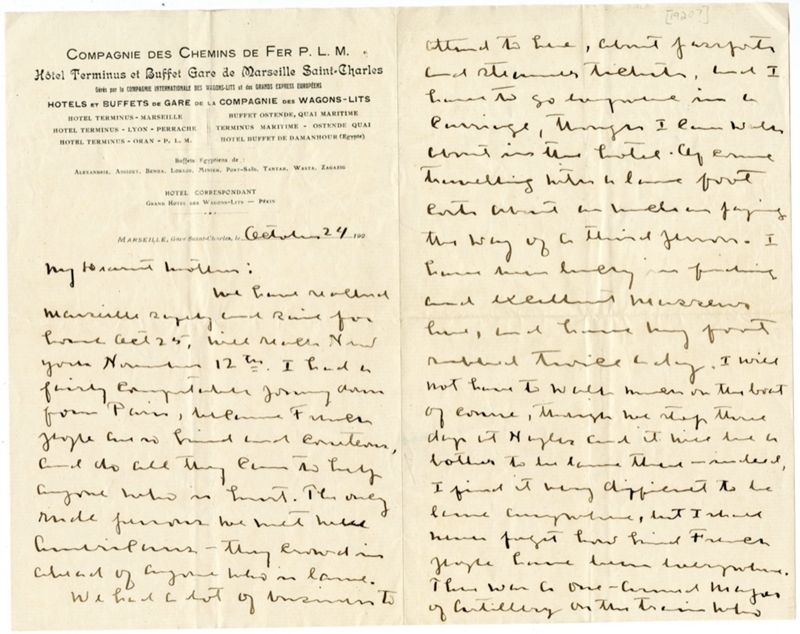 COMPAGNIE DES CHEMINS DE FER P. L. M.
Hôtel Terminus et Buffet Gare de Marseille Saint-Charles
Gérés par la COMPAGNIE INTERNATIONALE DES WAGONS-LITS et des GRANDS EXPRESS EUROPÉENS
HOTELS ET BUFFETS DE GARE DE LA COMPAGNIE DES WAGONS-LITS
HOTEL TERMINUS - MARSEILLE
HOTEL TERMINUS - LYON - PERRACHE
HOTEL TERMINUS - ORAN - P. L. M.
BUFFET OSTENDE, QUAI MARITIME
TERMINUS MARITIME - OSTENDE QUAI
HOTEL BUFFET DE DAMANHOUR (Egypte)
Buffets Egyptiens de :
ALEXANDRIE, ASSIOUT, BENHA, LOUXOR, MINIEH, PORT-SAÏD, TANTAH, WASTA, ZAGAZIG
HOTEL CORRESPONDANT
GRAND HOTEL DES WAGONS-LITS — PÉKIN
MARSEILLE, Gare Saint-Charles, le October 24 192
My Dearest Mother:
We have reached
Marseille safely and sail for
home Oct 25, will reach New
York November 12th. I had a
fairly comfortable journey down
from Paris, because French
people are so kind and courteous,
and do all they can to help
anyone who is hurt. The only
rude persons we met were
Americans — they crowd in
ahead of anyone who is lame.
We had a lot of business to
[1920?]
attend to here, about passports
and steamer tickets, and I
have to go everywhere in a
carriage, though I can walk
about in the hotel. Of course
travelling with a lame foot
costs about as much as paying
the way of a third person. I
have been lucky in finding
and excellent masseuse
here, and have my foot
rubbed twice a day. I will
not have to walk much on the boat
of course, though we stop three
days at Naples and it will be a
bother to be lame there — indeed,
I find it very difficult to be
lame anywhere, but I shall
never forget how kind French
people have been everywhere.
There was a one-armed Mayor
of artillery on the train who